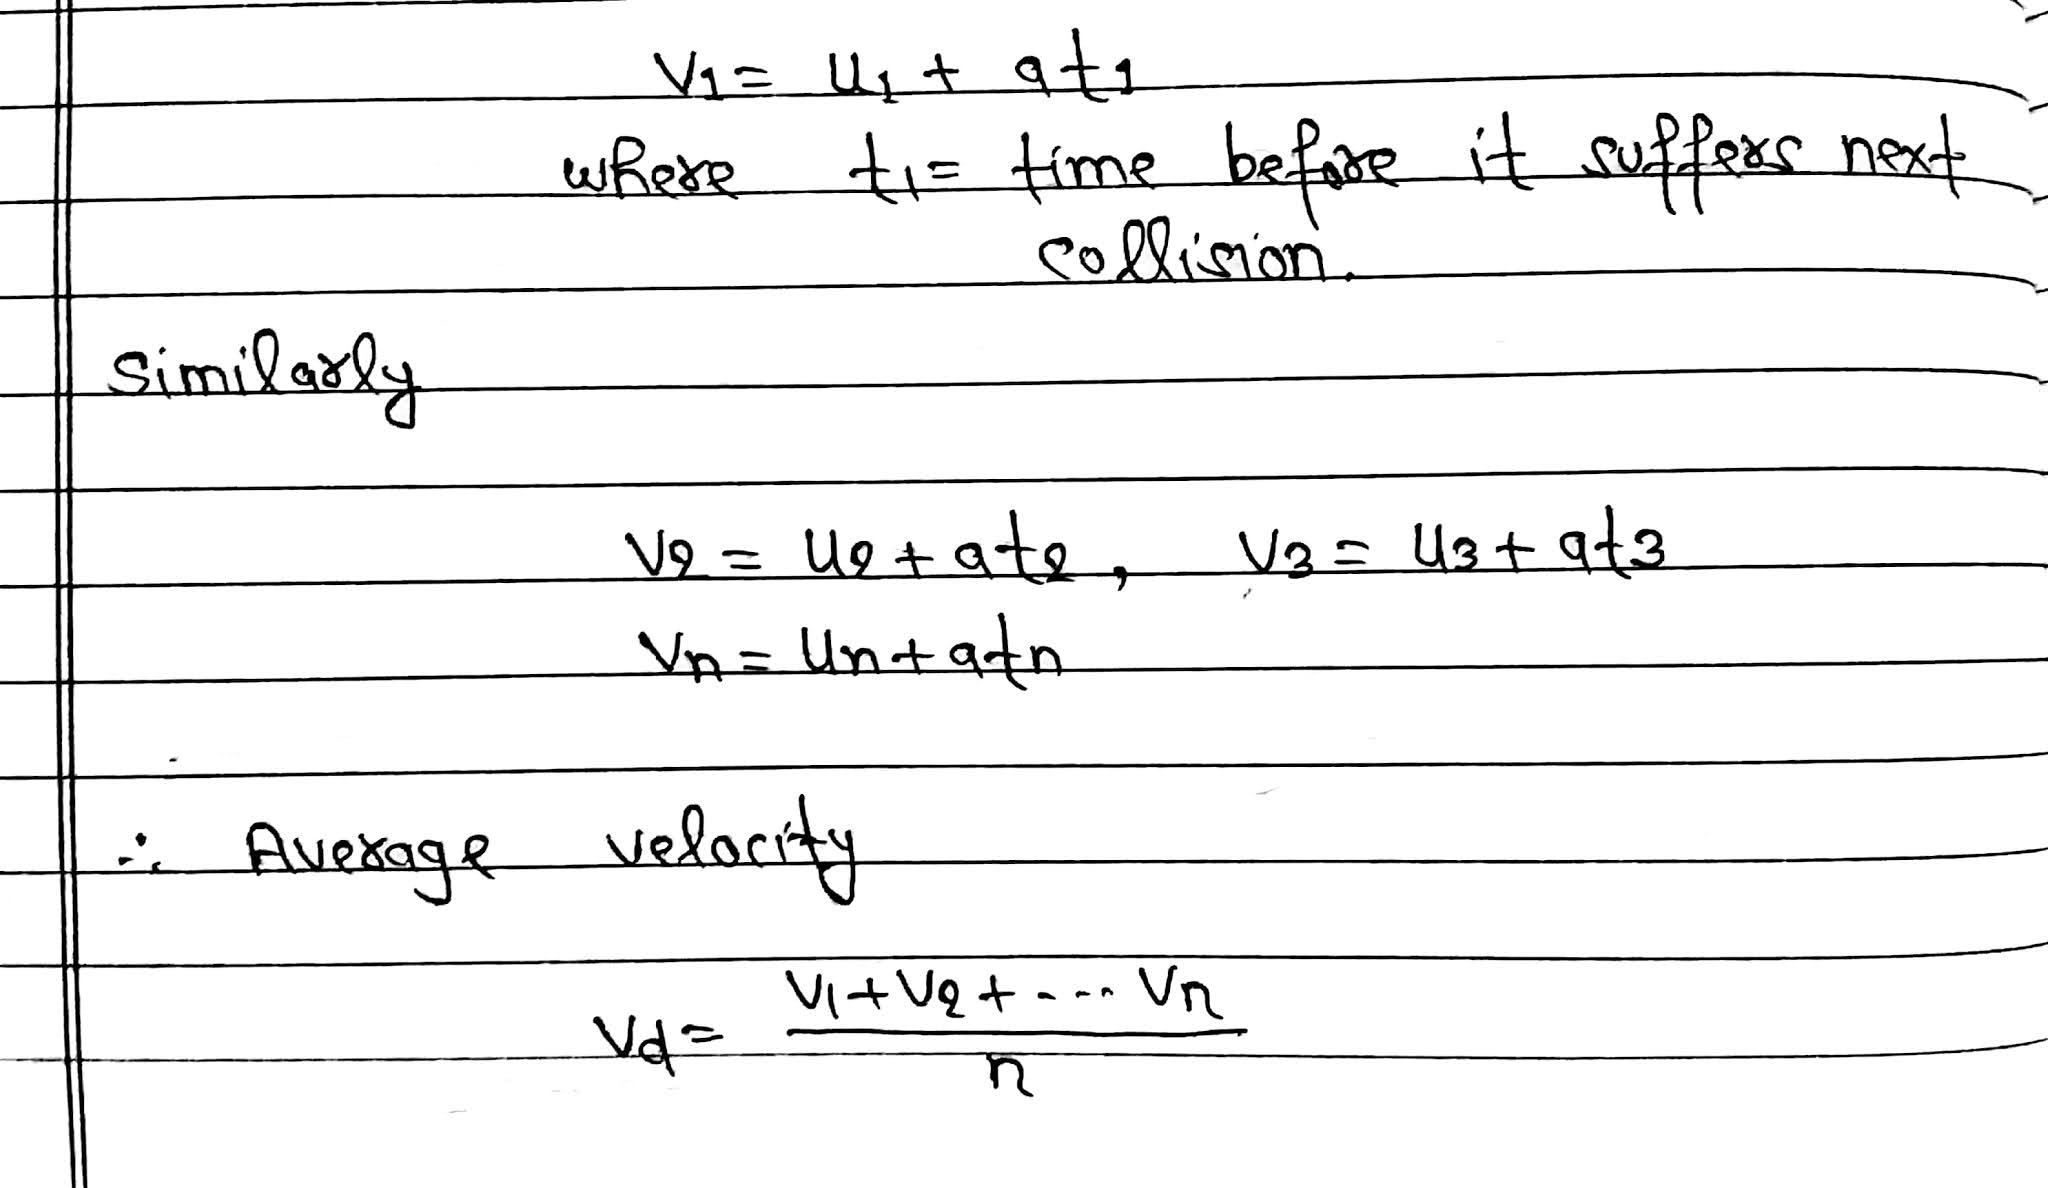 V1 = U1 + at1
where t1 = time before it suffers next
collision.
Similarly
V2 = U2 + at2, V3 = U3 + at3
Vn = Un + atn
∴ Average velocity
Vd = V1 + V2 + ---- Vn
n